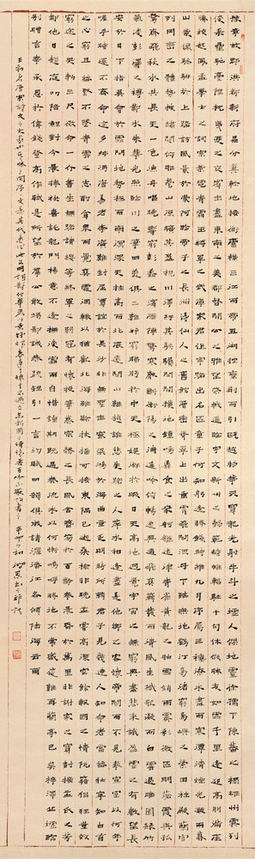 豫章故郡洪都新府星分翼軫地接衡廬襟三江而帶五湖控蠻荊而引甌越物華天寶龍光射牛斗之墟人傑地靈徐孺下陳蕃之榻雄州霧列
俊采星馳臺隍枕夷夏之交賓主盡東南之美都督閻公之雅望棨戟遙臨宇文新州之懿範襜帷暫駐十旬休假勝友如雲千里逢迎高朋滿座
騰蛟起鳳孟學士之詞宗紫電青霜王將軍之武庫家君作宰路出名區童子何知躬逢勝餞時維九月序屬三秋潦水盡而寒潭清煙光凝而暮
山紫儼驂騑於上路訪風景於崇阿臨帝子之長洲得仙人之舊館層巒聳翠上出重霄飛閣流丹下臨無地鶴汀鳧渚窮島嶼之縈迴桂殿蘭宮
列岡巒之體勢披繡闥俯雕甍山原曠其盈視川澤紆其駭矚閭閻撲地鐘鳴鼎食之家舸艦迷津青雀黃龍之舳雲銷雨霽彩徹區明落霞與孤
鶩齊飛秋水共長天一色漁舟唱晚響窮彭蠡之濱雁陣驚寒聲斷衡陽之浦遙吟俯暢逸興遄飛爽籟發而清風生纖歌凝而白雲遏睢園綠竹
氣凌彭澤之樽鄴水朱華光照臨川之筆四美具二難并窮睇眄於中天極娛遊於暇日天高地迥覺宇宙之無窮興盡悲來識盈虛之有數望長
安於日下目吳會於雲間地勢極而南溟深天柱高而北辰遠關山難越誰悲失路之人萍水相逢盡是他鄉之客懷帝閽而不見奉宣室以何年
嗟乎時運不齊命途多舛馮唐易老李廣難封屈賈誼於長沙非無聖主竄梁鴻於海曲豈乏明時所賴君子見機達人知命老當益壯寧移白首
之心窮且益堅不墜青雲之志酌貪泉而覺爽處涸轍以猶歡北海雖賒扶搖可接東隅已逝桑榆非晚孟嘗高潔空餘報國之情阮籍猖狂豈效
窮途之哭勃三尺微命一介書生無路請纓等終軍之弱冠有懷投筆慕宗愨之長風捨簪笏於百齡奉晨昏於萬里非謝家之寶樹接孟氏之芳
鄰他日趨庭叨陪鯉對今茲捧袂喜託龍門楊意不逢撫凌雲而自惜鍾期既遇奏流水以何慚嗚呼勝地不常盛筵難再蘭亭已矣梓澤丘墟臨
別贈言幸承恩於偉餞登高作賦是所望於群公敢竭鄙誠恭疏短引一言均賦四韻俱成請灑潘江各傾陸海云爾